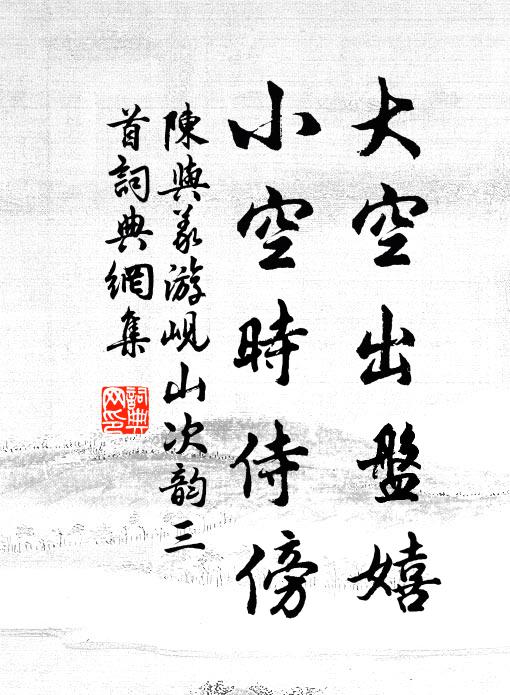 大空出盤嬉
小空時侍傍
陳與義游峴山次韵三
首詞典網集
詞典网印